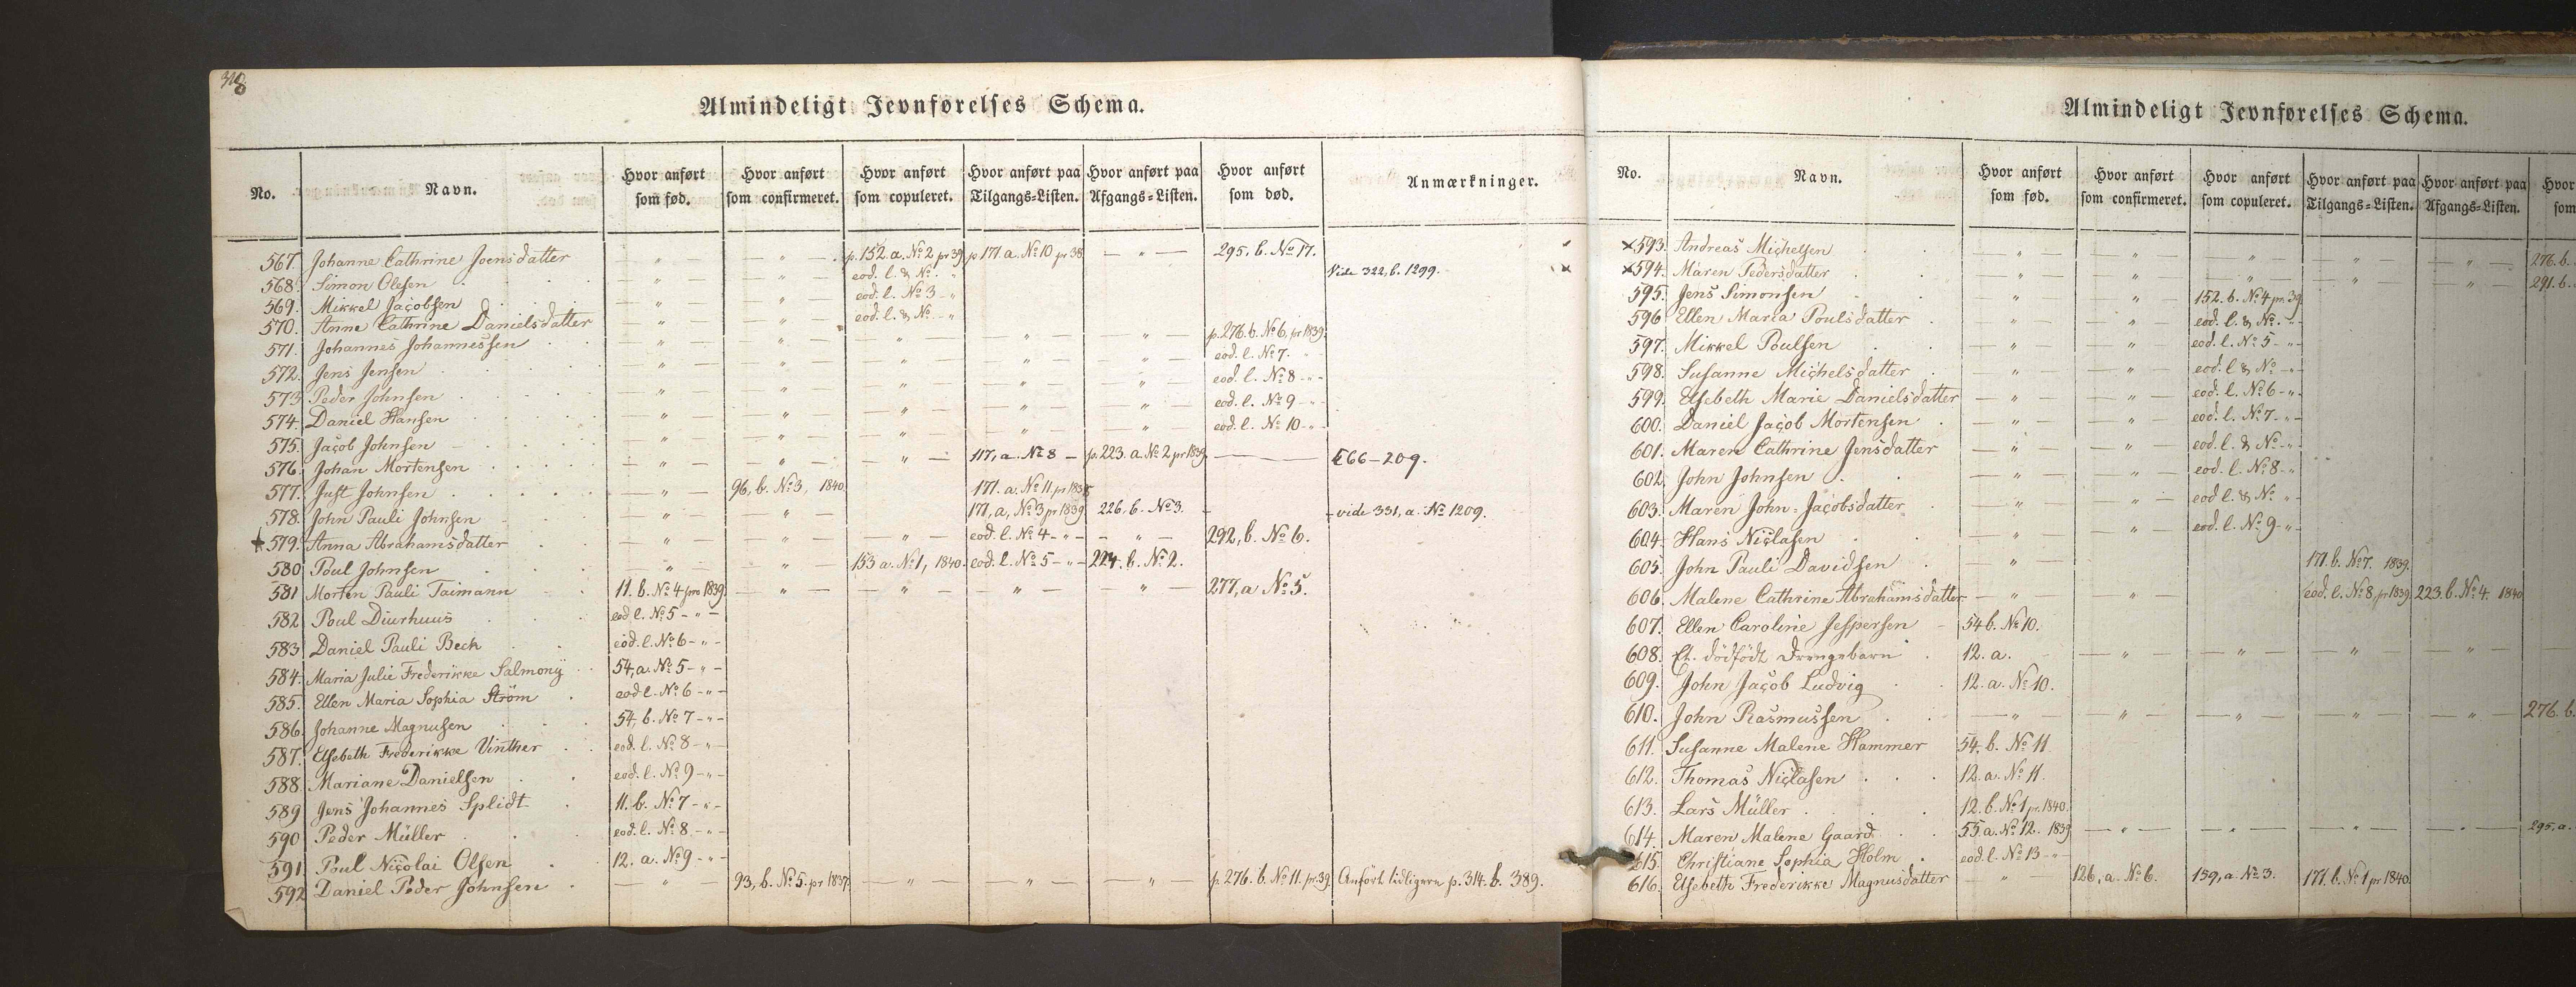 318
Almindeligt Jevnførelses Schema.
No. Navn. Hvor anført som fød. Hvor anført som confirmeret. Hvor anført som copuleret. Hvor anført paa Tilgangs=Listen. Hvor anført paa Afgangs=Listen. Hvor anført som død. Anmærkninger.
567. Johanne Cathrine Joensdatter — " — — " — p. 152. a. No 2 pr 39. p 171. a. No 10 pr 38 — " — 295. b. No 17.
568. Simon Olesen — " — — " — eod. l. & No. " Vide 322, b. 1299.
569. Mikkel Jacobsen — " — — " — eod. l. No 3 - "
570. Anne Cathrine Danielsdatter — " — — " — eod. l. & No - "
571. Johannes Johannessen — " — — " — " — " — — " — p. 276. b. No 6. pr 1839.
572. Jens Jensen — " — — " — " — " — — " — eod. l. No 7. "
573 Peder Johnsen — " — — " — — " — — " — — " — eod. l. No 8 - " -
574. Daniel Hansen — " — — " — — " — — " — — " — eod. l. No 9 - " -
575. Jacob Johnsen — " — — " — — " — — " — — " — eod. l. No 10 - " -
576. Johan Mortensen — " — — " — — " — 117, a. No 8 — p. 223. a. No 2 pr 1839. — 166 - 209.
577. Just Johnsen — " — 96, b. No 3, 1840. 171. a. No 11. pr 1838
578. John Pauli Johnsen — " — — " — 171, a, No 3 pr 1839 226, b. No 3. - vide 331, a. No 1209.
579. Anna Abrahamsdatter — " — — " — — " — eod. l. No 4 - " - - " — 292, b. No 6.
580 Poul Johnsen — " — — " — 153 a. No 1, 1840. eod. l. No 5 - " - 224. b. No 2.
581 Morten Pauli Taimann 11. b. No 4 pro 1839 — " — — " — — " — — " — 277, a No 5.
582 Poul Diurhuus eod l. No 5 - " -
583 Daniel Pauli Beck eod. l. No 6 - " -
584. Maria Julie Frederikke Salmony 54, a. No 5 - " -
585. Ellen Maria Sophia Ström eod l. No 6 - " -
586. Johanne Magnusen 54, b. No 7 - " -
587. Elsebeth Frederikke Vinther eod. l. No 8 - " -
588. Mariane Danielsen eod. l. No 9 - " -
589 Jens Johannes Splidt 11. b. No 7 - " -
590 Peder Müller eod. l. No 8 - " -
591 Poul Nicolai Olsen 12. a. No 9 - " -
592 Daniel Peder Johnsen — " — 93, b. No 5. pr 1837. — " — — " — — " — p. 276. b. No 11. pr. 39. Anført tidligere p. 314. b. 389.
Almindeligt Jevnførelses Schema.
No. Navn. Hvor anført som fød. Hvor anført som confirmeret. Hvor anført som copuleret. Hvor anført paa Tilgangs=Listen. Hvor anført paa Afgangs=Listen. Hvor som
x 593. Andreas Michelsen — " — " — " — — " — — " — 276. b.
x 594. Maren Pedersdatter — " — " — " — — " — — " — 291. b.
595. Jens Simonsen — " — " — 152. b. No 4 pr. 39.
596 Ellen Maria Poulsdatter — " — — " — eod. l. & No. "
597. Mikkel Poulsen — " — — " — eod. l. No 5 - " -
598. Susanne Michelsdatter — " — — " — eod. l & No - " -
599. Elsebeth Marie Danielsdatter — " — — " — eod. l. No 6 - " -
600. Daniel Jacob Mortensen — " — — " — eod. l. No 7 - " -
601. Maren Cathrine Jensdatter — " — — " — eod. l. & No - " -
602. John Johnsen — " — — " — eod. l. No 8 - "
603. Maren John=Jacobsdatter — " — — " — eod l. & No " -
604. Hans Niclasen — " — — " — eod. l. No 9 - " -
605. John Pauli Davidsen — " — 171. b. No 7. 1839.
606. Malene Cathrine Abrahamsdatter — " — — " — eod. l. No 8. pr 1839. 223. b. No 4. 1840
607. Ellen Caroline Jespersen 54 b. No 10.
608. Et dödfödt Drengebarn 12. a. — " — — " — — " — — " —
609. John Jacob Ludvig 12. a. No 10.
610. John Rasmussen — " — — " — — " — — " — — " — 276. b.
611. Susanne Malene Hammer 54, b. No 11.
612. Thomas Niclasen 12. a. No 11.
613. Lars Müller 12. b. No 1 pr. 1840.
614. Maren Malene Gaard 55 a. No 12. 1839 — " — — " — — " — — " — 295, a.
615. Christiane Sophia Holm eod. l. No 13 - "
616. Elsebeth Frederikke Magnusdatter — " — 126, a. No 6. 159, a. No 3. 171. b. No 1 pr 1840.